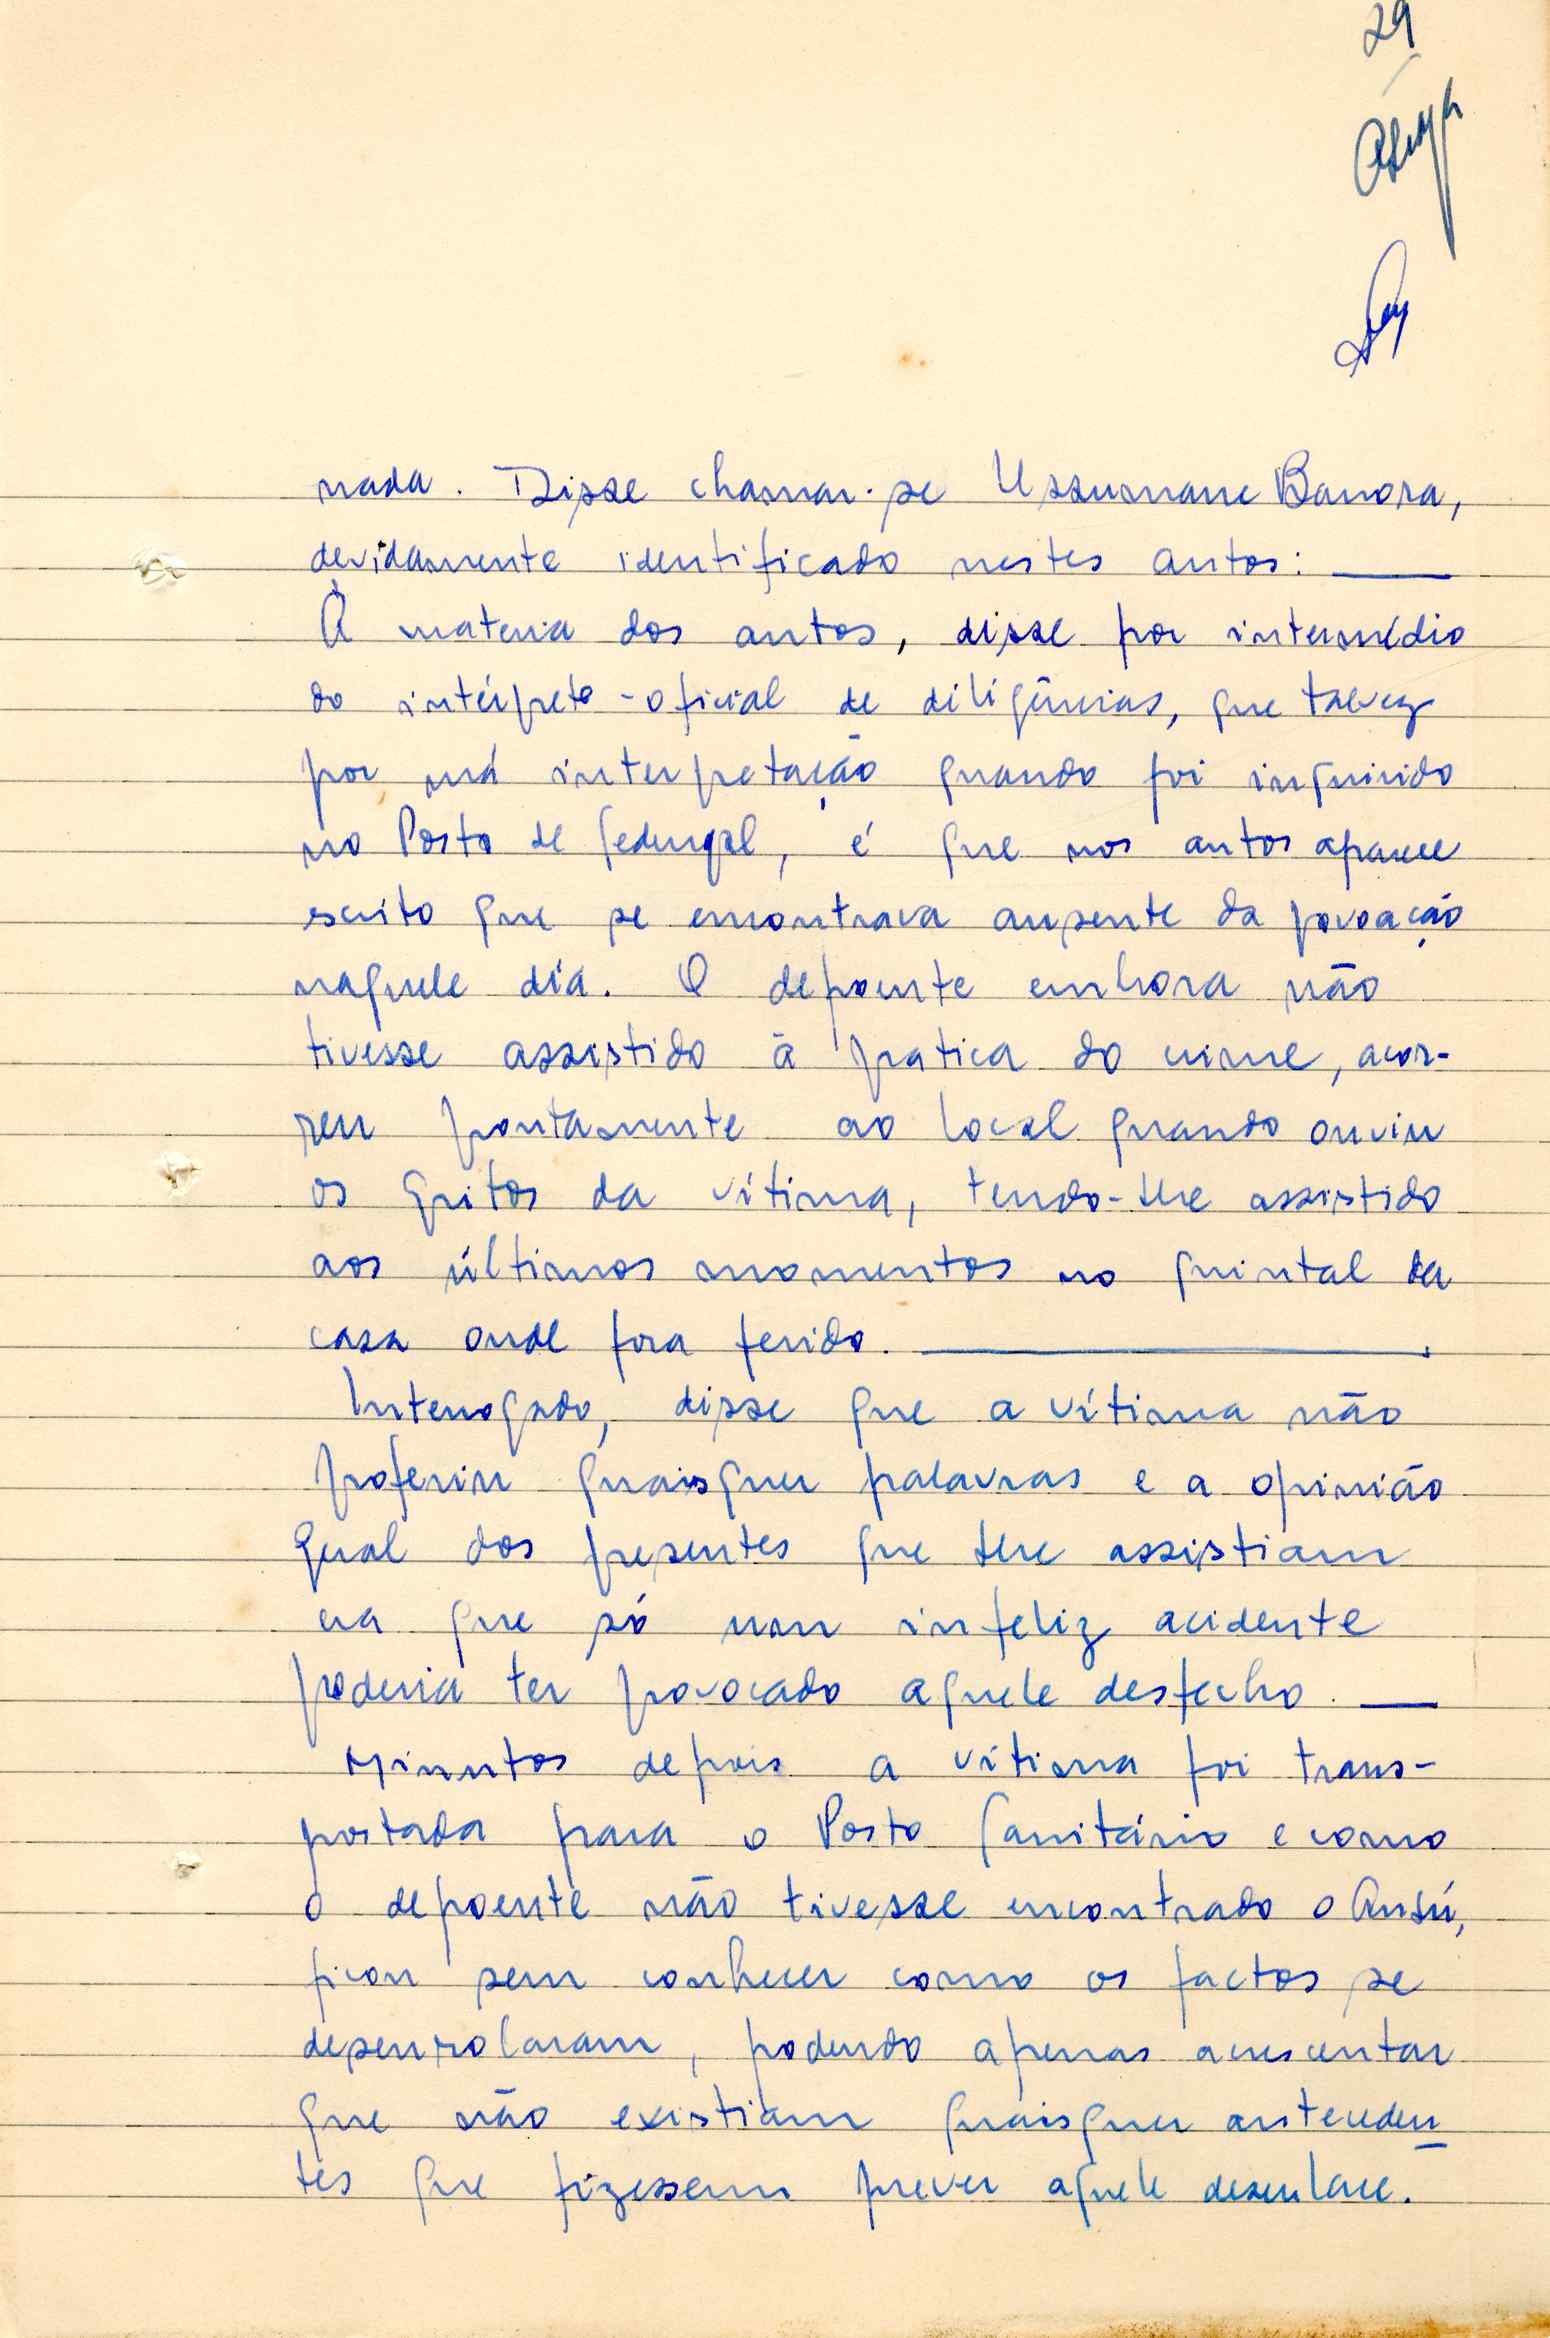 29
nada. Disse chamar-se Ussumane Banora,
devidamente identificado nestes autos: ____
À materia dos autos, disse por intermédio
do intérprete-oficial de diligências, que talvez
por má interpretação quando foi inquirido
no Posto de , é que nos autos aparece
escrito que se encontrava ausente da povoação
naquele dia. O depoente embora não
tivesse assistido à pratica do crime, acor-
reu prontamente ao local quando ouviu
os gritos da vítima, tendo-lhe assistido
aos últimos momentos no quintal da
casa onde fora ferido. ____
Interrogado, disse que a vítima não
proferiu quaisquer palavras e a opinião
geral dos presentes que lhe assistiam
era que só um infeliz acidente
poderia ter provocado aquele desfecho. __
Minutos depois a vítima foi trans-
portada para o Posto Sanitário e como
o depoente não tivesse encontrado o Ansú,
ficou sem conhecer como os factos se
desenrolaram, podendo apenas acrescentar
que não existiam quaisquer anteceden
tes que fizessem prever aquele desenlace.